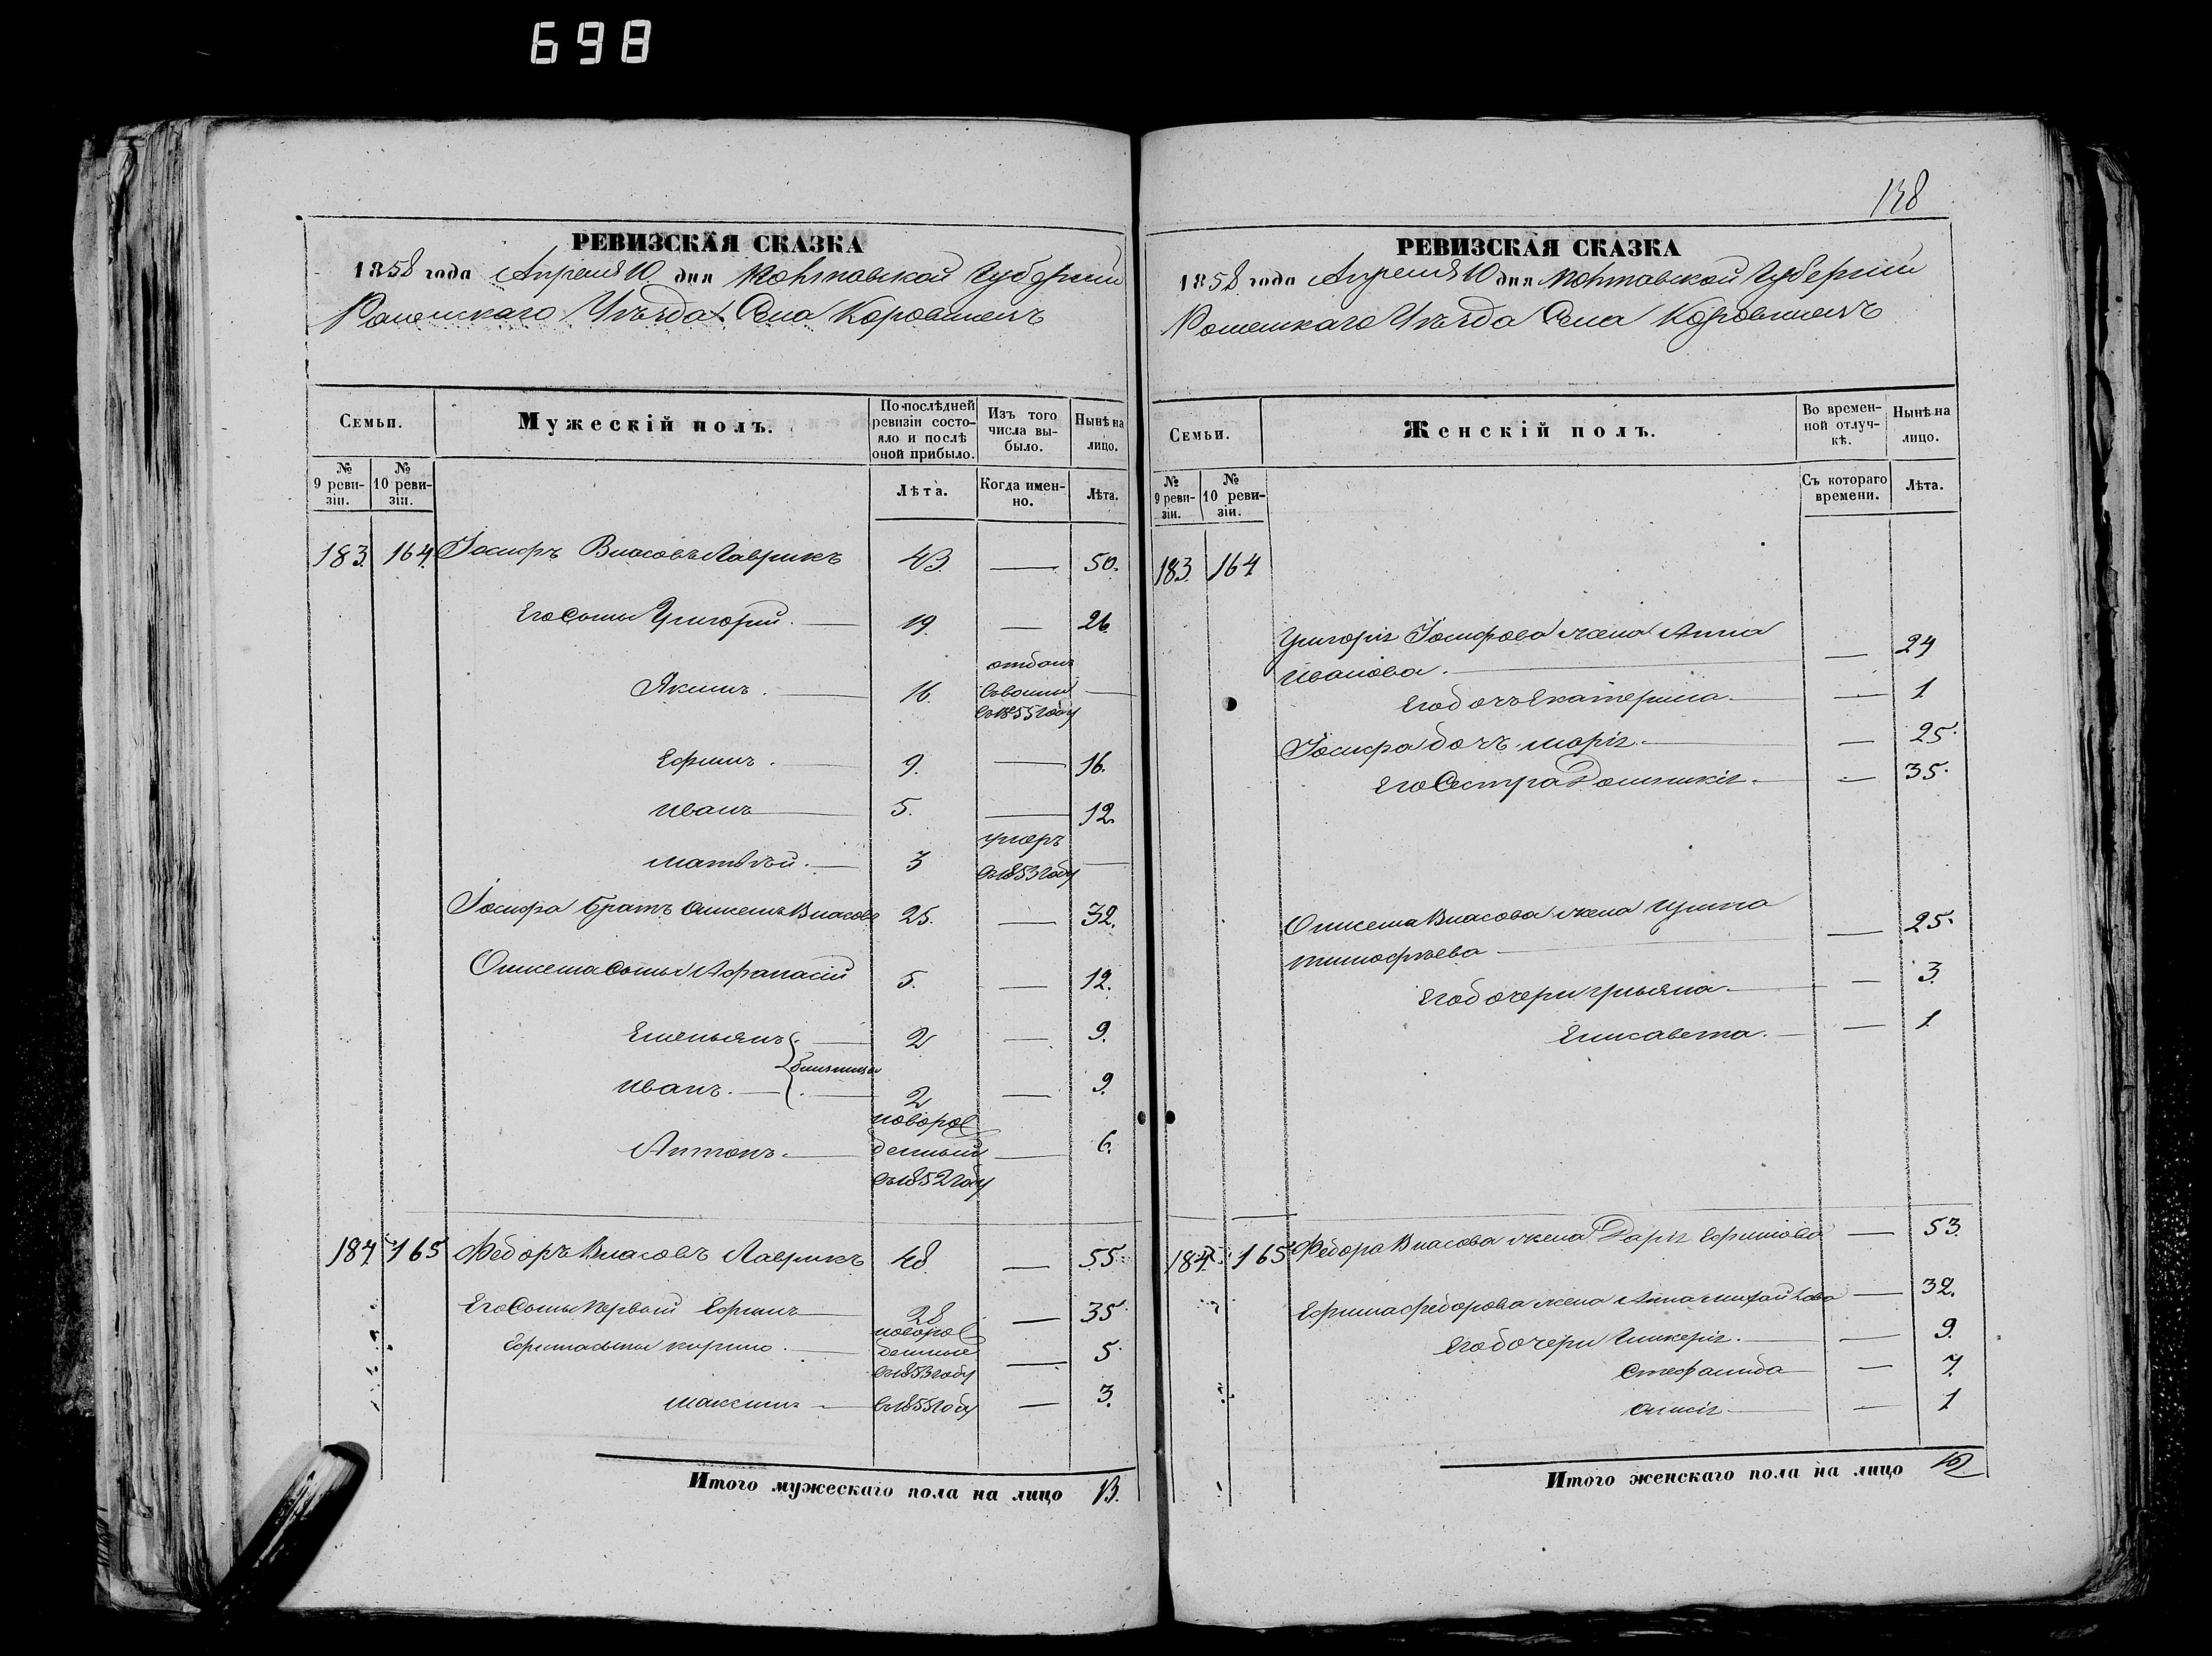 698
138
РЕВИЗСКАЯ СКАЗКА
1858 года Апреля 10 дня Полтавской Губернии
Роменскаго Уѣзда Села Коровинецъ
Семьи.
Мужескій полъ.
По послѣдней ревизіи состояло и послѣ оной прибыло.
Изъ того числа выбыло.
Нынѣ на лицо.
№ 9 ревизіи.
№ 10 ревизіи.
Лѣта.
Когда именно.
Лѣта.
183. 164. Іосифъ Власовъ Лаврикъ 43 — 50.
Его Сыны Григорій. — 19. — 26.
Якимъ. — 16. отданъ въ 1855 году —
Ефимъ. — 9. — 16.
Иванъ — 5. — 12.
Матвѣй. — 3 умеръ въ 1853 году —
Іосифа братъ Власовъ 25. — 32.
Сыны Афанасій 5. — 12.
Емельянъ — 2 — 9.
близнецы
Иванъ. — 2 — 9.
Антонъ. — новорожденный въ 1852 году — 6.
184. 165 Федоръ Власовъ Лаврикъ 48 — 55.
Его Сыны первый Ефимъ 28 — 35.
Ефима сыны Кирило. — новорожденные въ 1853 году — 5.
Максимъ — въ 1855 году — 3.
Итого мужескаго пола на лицо 13.
РЕВИЗСКАЯ СКАЗКА
1858 года Апреля 10 дня Полтавской Губернии
Роменскаго Уѣзда Села Коровинецъ
Семьи.
Женскій полъ.
Во временной отлучкѣ.
Нынѣ на лицо.
№ 9 ревизіи.
№ 10 ревизіи.
Съ котораго времени.
Лѣта.
183. 164
Григорія Іосифова жена Анна
Иванова. — — 24
Его дочь Екатерина. — — 1.
Іосифа дочь Марія. — — 25.
Его Сестра Домникія. — — 35.
Власова жена
Тимофѣева — — 25.
Его дочери Ульяна. — — 3.
Елисавета. — — 1.
184. 165 Федора Власова жена Дарія Ефимова — 53.
Ефима Федорова жена Анна Михайлова — 32.
Его дочери Гликерія. — — 9.
Стефанида — 7.
Анисія. — — 1
Итого женскаго пола на лицо 12